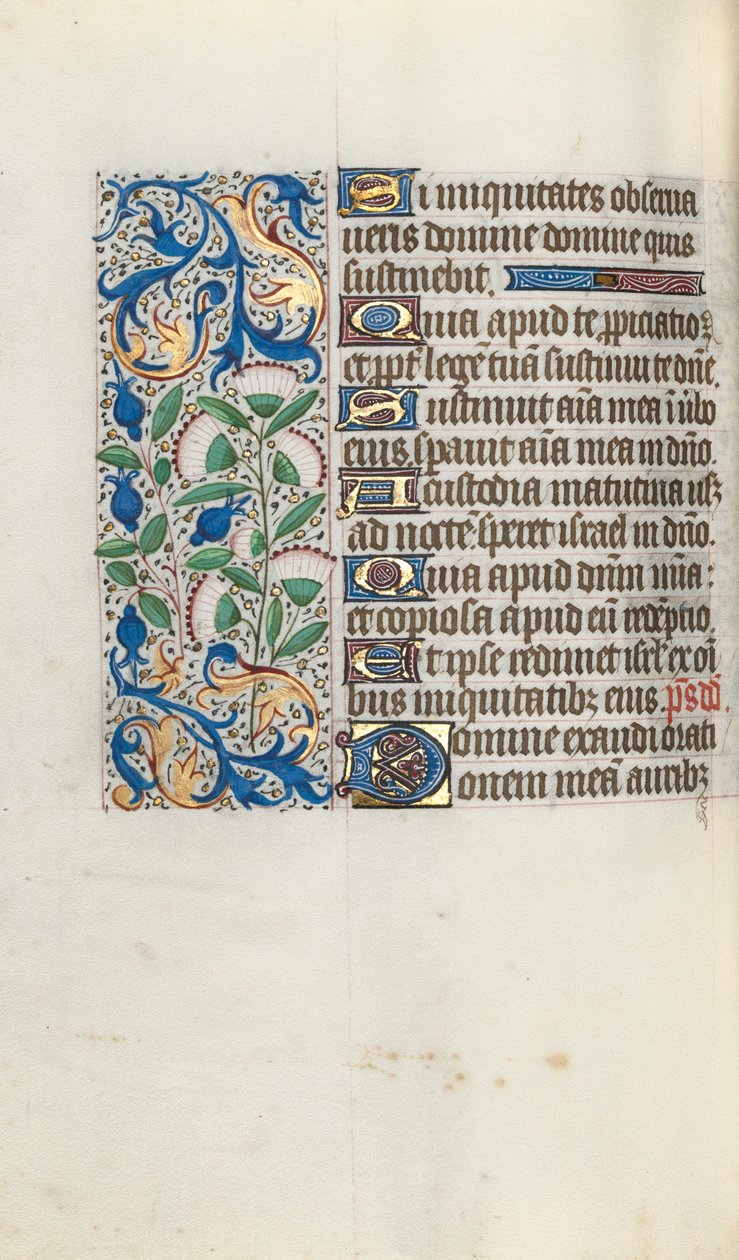 Si iniquitates obserua
ueris domine domine quis
sustinebit.
Quia apud te ꝓpiciatio ⁊
et ꝓpt̉ legẽ tuã sustinui te dñe.
Sustinuit aĩa mea ĩ ũbo
eius spauit aĩa mea in dño.
A custodia matutina usꝫ
ad noctẽ speret israel in dño.
Quia apud dñm mĩa:
et copiosa apud eũ redẽptio.
Et ipse redimet isrl̃ ex oĩ
bus iniquitatibꝫ eius. p̃s dd̃.
Domine exaudi orati
onem meã auribꝫ